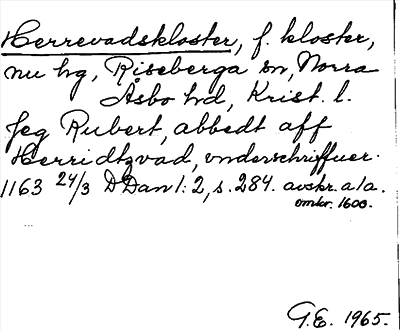 Herrevadskloster, f. kloster,
nu hg, Riseberga sn, Norra
Åsbo hd, Krist. l.
Jeg Rubert, abbedt aff
Herridtzvad, vnderschriffuer.
1163 24/3 DDan 1:2, s. 284. avskr. a1a.
omkr. 1600.
G.E. 1965.